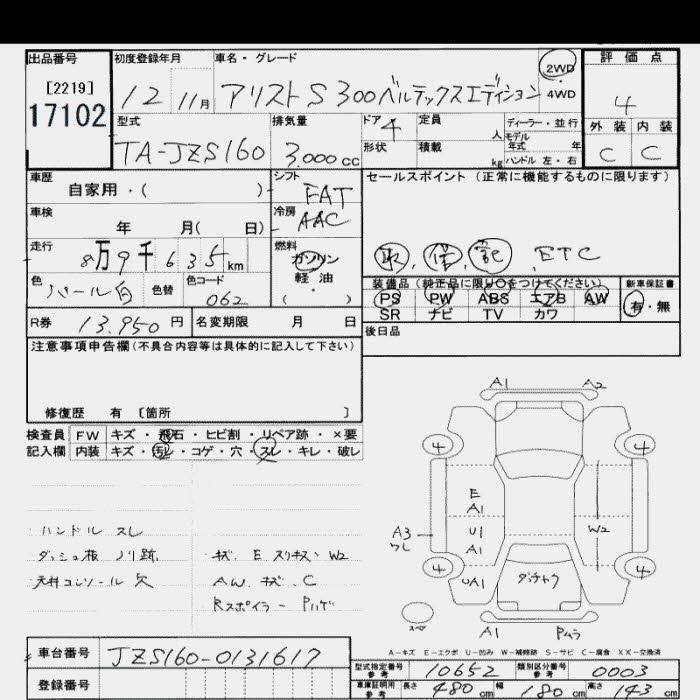 出品番号 初度登録年月 車名・グレード 2WD 評価点
[2219] 12 11月 アリスト S300ベルテックスエディション ・4WD 4
17102 型式 排気量 ドア 4 定員 人 ディーラー・並行 外装 内装
TA-JZS160 3,000cc 形状 積載 kg モデル年式 年 ハンドル 左・右 C C
車歴 自家用・( ) シフト FAT セールスポイント (正常に機能するものに限ります)
車検 年 月( 日) 冷房 AAC
走行 8万9千635km 燃料 ガソリン 取, 保, 記, ETC
色 パール白 色替 色コード 062 軽油 ・( ) 装備品 (純正品に限り○をつけてください) 新車保証書
PS PW ABS エアB AW 有・無
R券 13,950円 名変期限 月 日 SR ナビ TV カワ
注意事項申告欄(不具合内容等は具体的に記入して下さい) 後日品
修復歴 有 〔箇所 〕
検査員 FW キズ・飛石・ヒビ割・リペア跡・×要
記入欄 内装 キズ・汚レ・コゲ・穴・スレ・キレ・破レ
ハンドル スレ
ダッシュ板 ノリ跡 キズ、E スリキズ、W2
天井コンソール 欠 AW キズ、C
Rスポイラー Pハゲ
A1 A2
4 4
E
A1
A3 ワレ U1 W2
A1
4 UA1 ダッチャク 4
スペア A1 Pムラ
A-キズ E-エクボ U-凹み W-補修跡 S-サビ C-腐食 XX-交換済
車台番号 JZS160-0131617
型式指定番号 参考 10652 類別区分番号 参考 0003
登録番号 車庫証明用 参考 長さ 480cm 幅 180cm 高さ 143cm